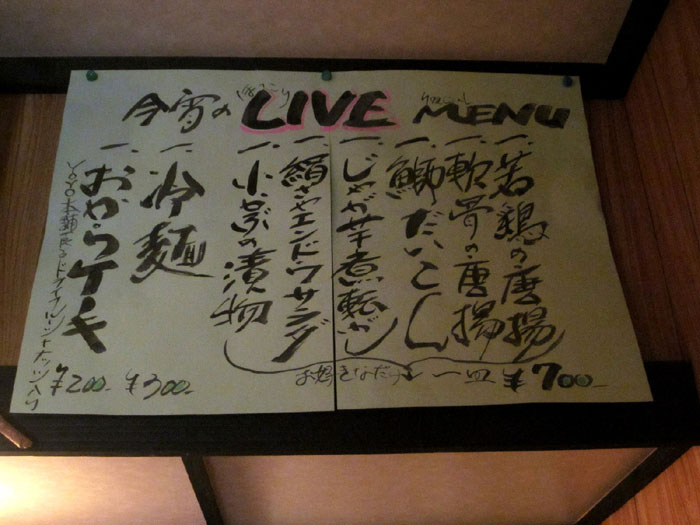 今宵の LIVE MENU
一、若鶏の唐揚
一、軟骨の唐揚
一、鰤だいこん
一、じゃが芋煮転がし
一、絹さやエンドウサラダ
一、小かぶの漬物
お好きなだけ 一皿 ¥700-
一、冷麺
¥300-
一、おからケーキ
ドライフルーツとナッツ入り
¥200-